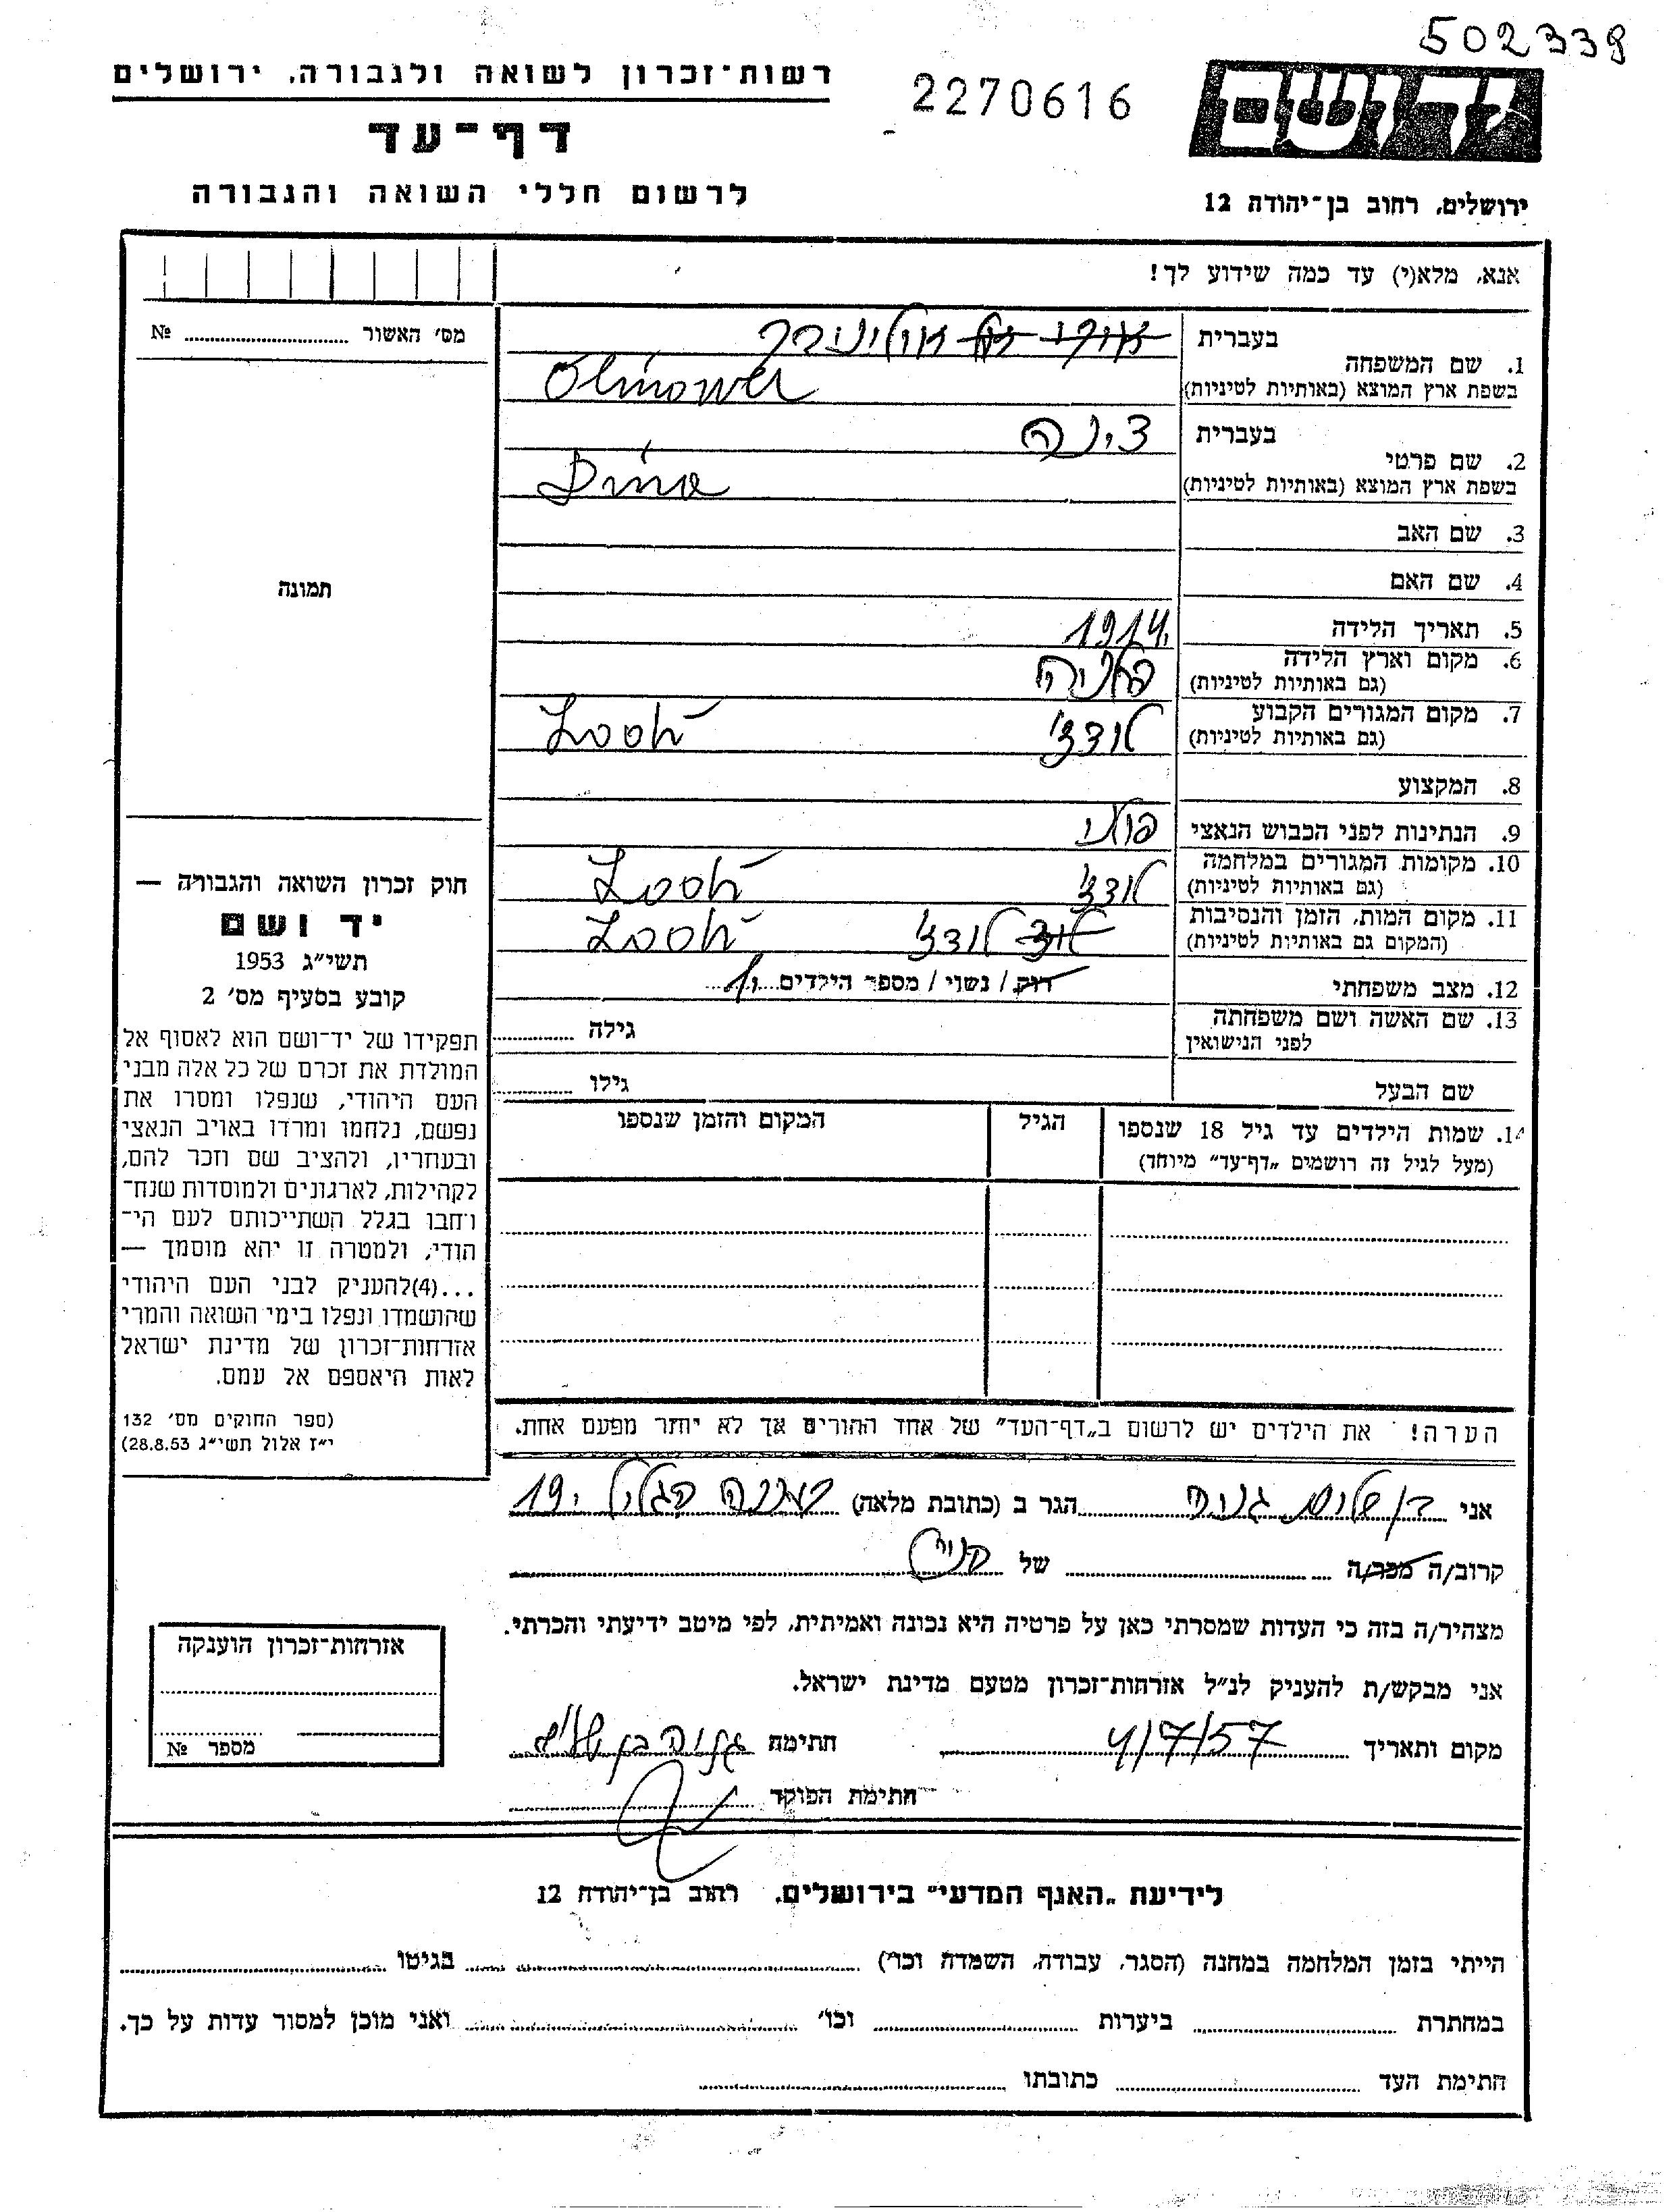 502339
רשות־זכרון לשואה ולגבורה, ירושלים
2270616
דף־עד
לרשום חללי השואה והגבורה
ירושלים, רחוב בן־יהודה 12
אנא, מלא(י) עד כמה שידוע לך!
בעברית
1. שם המשפחה
בשפת ארץ המוצא (באותיות לטיניות) Olinower
בעברית דינה
2. שם פרטי
בשפת ארץ המוצא (באותיות לטיניות) Dina
3. שם האב
4. שם האם
5. תאריך הלידה 1914
6. מקום וארץ הלידה
(גם באותיות לטיניות)
7. מקום המגורים הקבוע לודז'
(גם באותיות לטיניות)
8. המקצוע
9. הנתינות לפני הכבוש הנאצי פולני
10. מקומות המגורים במלחמה לודז'
(גם באותיות לטיניות)
11. מקום המות, הזמן והנסיבות לודז'
(המקום גם באותיות לטיניות)
12. מצב משפחתי רוק / נשוי / מספר הילדים 1
13. שם האשה ושם משפחתה גילה
לפני הנישואין
שם הבעל גילו
14. שמות הילדים עד גיל 18 שנספו הגיל המקום והזמן שנספו
(מעל לגיל זה רושמים „דף־עד״ מיוחד)
הערה! את הילדים יש לרשום ב„דף־העד״ של אחד ההורים אך לא יותר מפעם אחת.
מס׳ האשור № 
תמונה
חוק זכרון השואה והגבורה —
יד ושם
תשי״ג 1953
קובע בסעיף מס׳ 2
תפקידו של יד־ושם הוא לאסוף אל
המולדת את זכרם של כל אלה מבני
העם היהודי, שנפלו ומסרו את
נפשם, נלחמו ומרדו באויב הנאצי
ובעוזריו, ולהציב שם וזכר להם,
לקהילות, לארגונים ולמוסדות שנח־
רבו בגלל השתייכותם לעם הי־
הודי, ולמטרה זו יהא מוסמך —
...(4)להעניק לבני העם היהודי
שהושמדו ונפלו בימי השואה והמרי
אזרחות־זכרון של מדינת ישראל
לאות היאספם אל עמם.
(ספר החוקים מס׳ 132
י״ז אלול תשי״ג 28.8.53)
אני בן שלום גניה הגר ב (כתובת מלאה) הגליל 19
קרוב/ה מכר/ה של
מצהיר/ה בזה כי העדות שמסרתי כאן על פרטיה היא נכונה ואמיתית, לפי מיטב ידיעתי והכרתי.
אני מבקש/ת להעניק לנ״ל אזרחות־זכרון מטעם מדינת ישראל.
מקום ותאריך 4/7/57 חתימה גניה בן שלום
חתימת הפוקד
אזרחות־זכרון הוענקה
מספר №
לידיעת „האגף המדעי״ בירושלים, רחוב בן־יהודה 12
הייתי בזמן המלחמה במחנה (הסגר, עבודה, השמדה וכו׳) בגיטו
במחתרת ביערות וכו׳ ואני מוכן למסור עדות על כך.
חתימת העד כתובתו